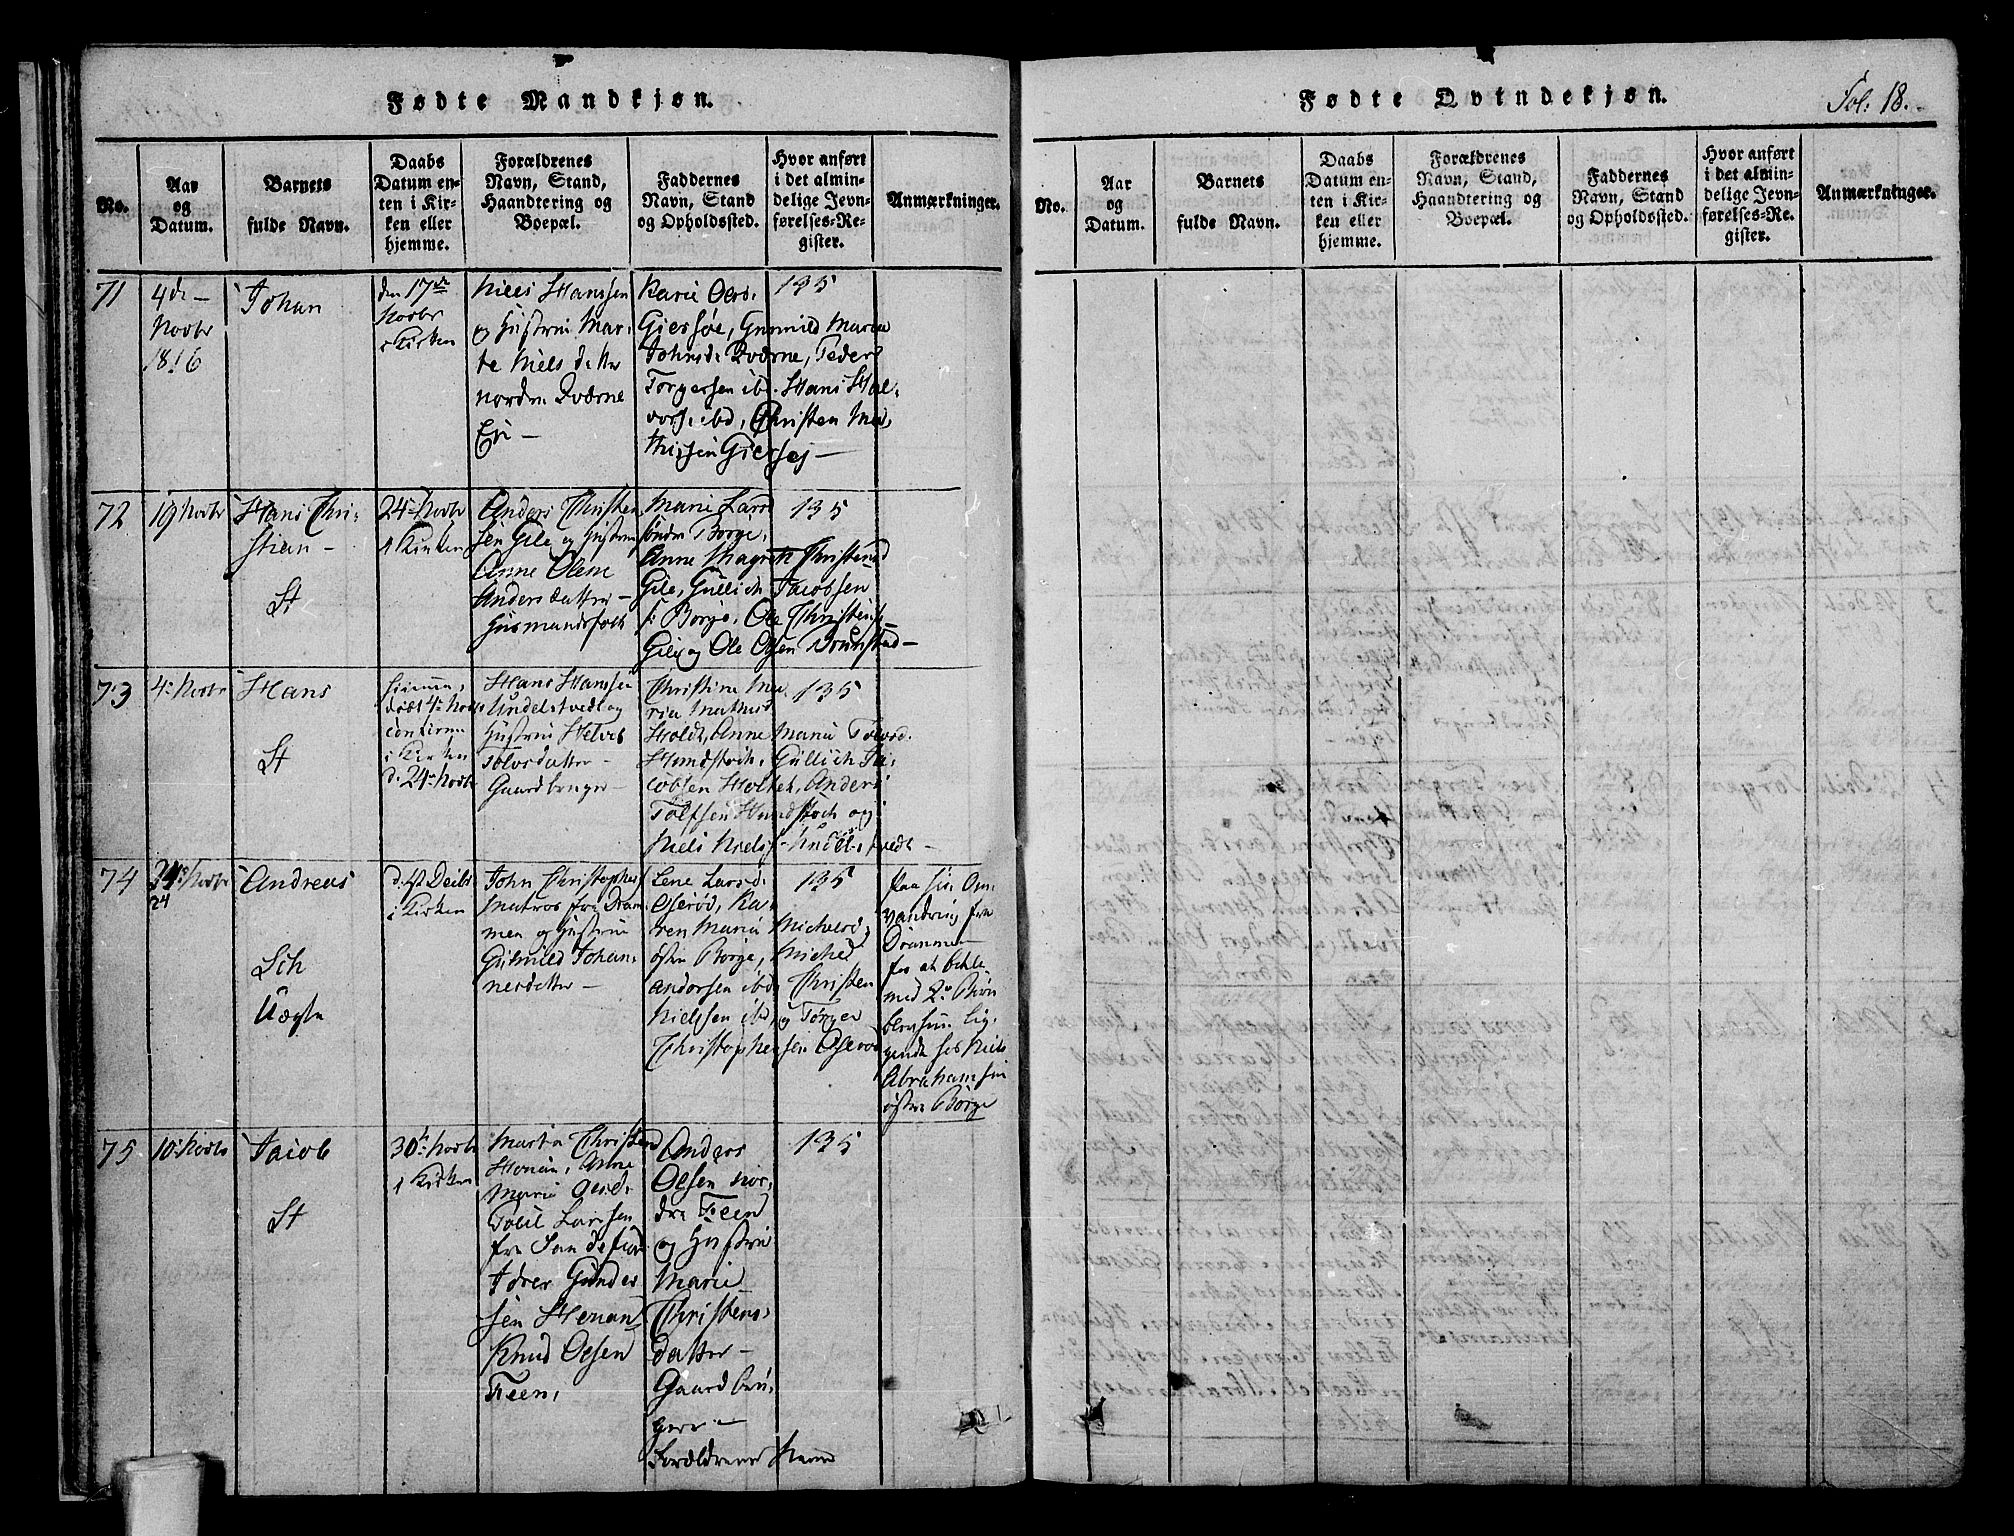 Fødte Mandkjøn.
No.
Aar
og
Datum.
Barnets
fulde Navn.
Daabs
Datum en-
ten i Kir-
ken eller
hjemme.
Forældrenes
Navn, Stand,
Haandtering og
Boepæl.
Faddernes
Navn, Stand
og Opholdssted.
Hvor anført
i det almin-
delige Jevn-
førelses-Re-
gister.
Anmærkninger.
71
4de
Novbr
1816
Johan
den 17de
Novbr
i Kirken
Niels Hanssen
og Hustrue Mar-
te Niels datter
nordre Qværne
Karie Oels.
Giersøe, Gunnild Maria
Johnsd. Qværne, Peder
Torgersen ibd. Hans Hal-
vors. ibd, Christen Ma-
thissen Giersøe
135
72
19 Novbr
Hans Chri-
stian
St
24 Novbr
i Kirken
Anders Christen
sen Gile og Hustrue
Anne Olene
Andersdatter
Huusmandsfolk
Marie Lars
søndre Borge,
Anne Magrete Christensd
Gile, Gullich Jacobsen
s: Borge, Ole Christens
Gile og Ole Olsen
135
73
4 Novbr
Hans
St
døbt 4 Novbr
confirm
i Kirken
d. 24 Novbr
Hans Hanssen
Undelstvedt og
Hustrue Helvig
Tolvsdatter
Gaardbruger
Christine Ma-
ria Mathisd
Holdt, Anne Marie Tolvsd.
Hundstoch, Gullich Ja-
cobsen Holtet, Anders
Tolfsen Hundstoch og
Niels Niels. Undelstvedt
135
74
24 Novbr
24
Andreas
i Kirken
John Christophers
Matros fra Dram-
men og Hustrue
Gunnild Johan-
nesdatter
Lene Larsd.
Oserød, Ka-
ren Marie Michelsd.
østre Borge, Michel
Andersen ibd, Christen
Nielssen ibd, og Torger
Christophersen Oserød
135
Paa sin Om-
vandring fra
Drammen
for at betle
med 2de Børn
blev hun lig-
gende hos Niels
Abrahamsen
østre Borge
75
10 Novbr
Jacob
St
30 Novbr
i Kirken
Marta Christensd
Marie Olsd.
Poul Larssen
fra Sandefiord
Gunder
sen Henan
Knud Oelsen
Feen,
Anders
Oelsen nor-
dre Feen
og Hustrue
Marie
Christens-
datter
Gaardbru-
gere
Forældrenes Navne
135
Fødte Qvindekjøn.
Fol: 18.
No.
Aar
og
Datum.
Barnets
fulde Navn.
Daabs
Datum en-
ten i Kir-
ken eller
hjemme.
Forældrenes
Navn, Stand,
Haandtering og
Boepæl.
Faddernes
Navn, Stand
og Opholdssted.
Hvor anført
i det almin-
delige Jevn-
førelses-Re-
gister.
Anmærkninger.